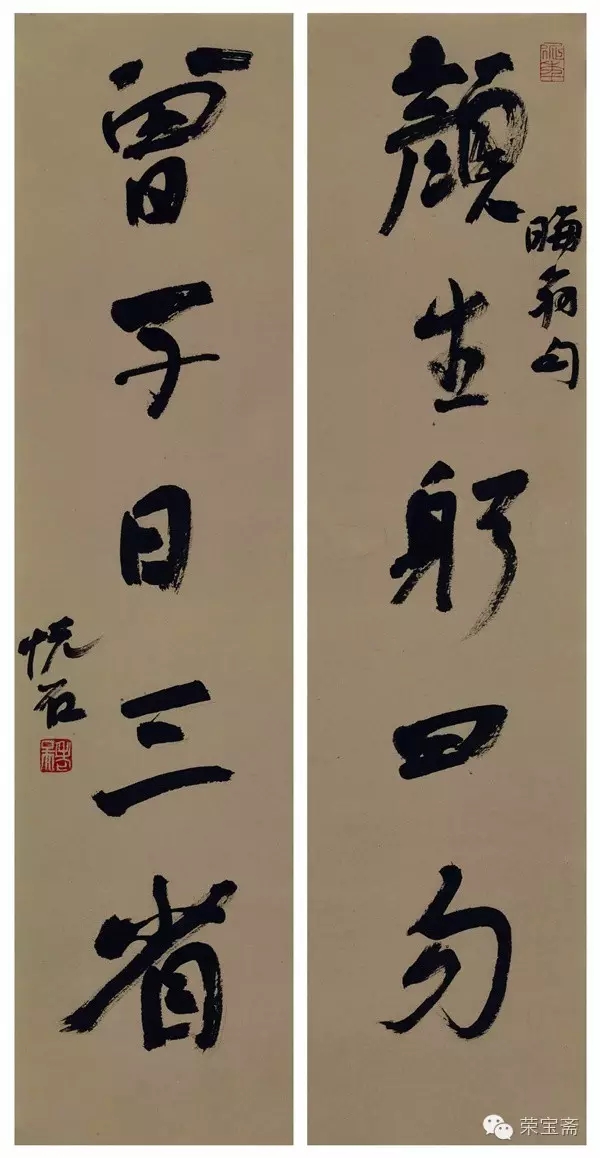 晦翁句
顏生躬四勿
曾子日三省
悦石
荣宝斋